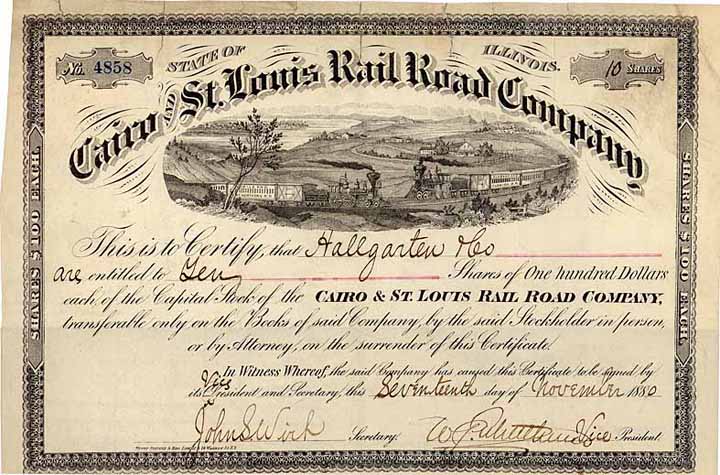 No. 4858
STATE OF ILLINOIS.
10 SHARES
Cairo AND St. Louis Rail Road Company,
SHARES $100 EACH.
SHARES $100 EACH.
This is to Certify, that Hallgarten & Co
are entitled to Ten Shares of One hundred Dollars
each of the Capital Stock of the CAIRO & ST. LOUIS RAIL ROAD COMPANY,
transferable only on the Books of said Company, by the said Stockholder in person,
or by Attorney, on the surrender of this Certificate.
In Witness Whereof, the said Company has caused this Certificate to be signed by
Vice
its President and Secretary, this Seventeenth day of November 1880
John S. Wirk Secretary. Vice President.